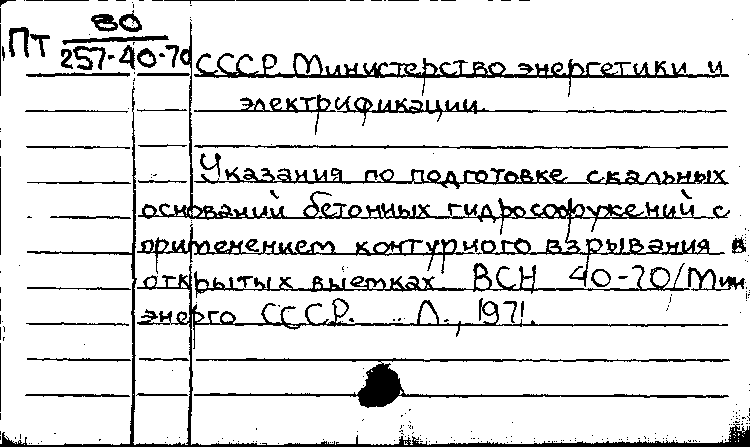 ПТ 80
257-40-70
СССР. Министерство энергетики и
электрификации.
Указания по подготовке скальных
оснований бетонных гидросооружений с
применением контурного взрывания в
открытых выемках. ВСН 40-70/Мин
энерго СССР. - Л., 1971.